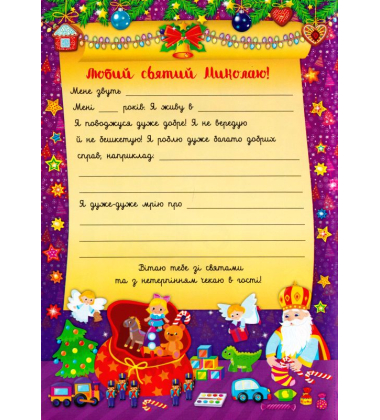 Любий святий Миколаю!
Мене звуть
Мені ____ років. Я живу в
Я поводжуся дуже добре! Я не вередую
й не бешкетую! Я роблю дуже багато добрих
справ, наприклад:
Я дуже-дуже мрію про
Вітаю тебе зі святами
та з нетерпінням чекаю в гості!